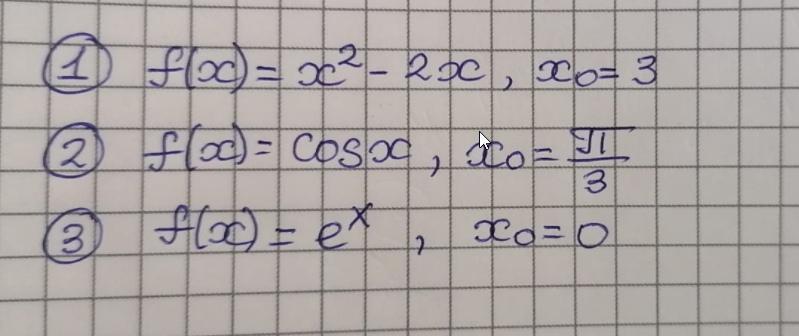 ① f(x) = x² - 2x , x₀ = 3
② f(x) = cos x , x₀ = π/3
③ f(x) = eˣ , x₀ = 0